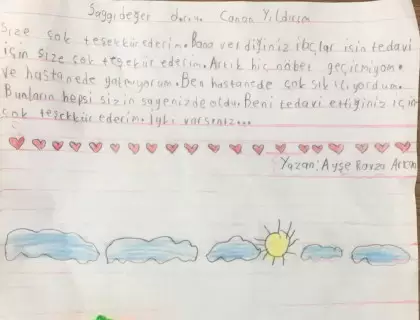 Saygıdeğer doktorum Canan Yıldırım
Size çok teşekkür ederim. Bana verdiğiniz ilaçlar için tedavi
için size çok teşekkür ederim. Artık hiç nöbet geçirmiyorum.
Ve hastanede yatmıyorum. Ben hastanede çok sıkılıyordum.
Bunların hepsi sizin sayenizde oldu. Beni tedavi ettiğiniz için
çok teşekkür ederim. İyki varsınız...
Yazan: Ayşe Ravza